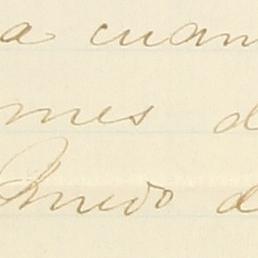 a cuan
mes d
Quedo d